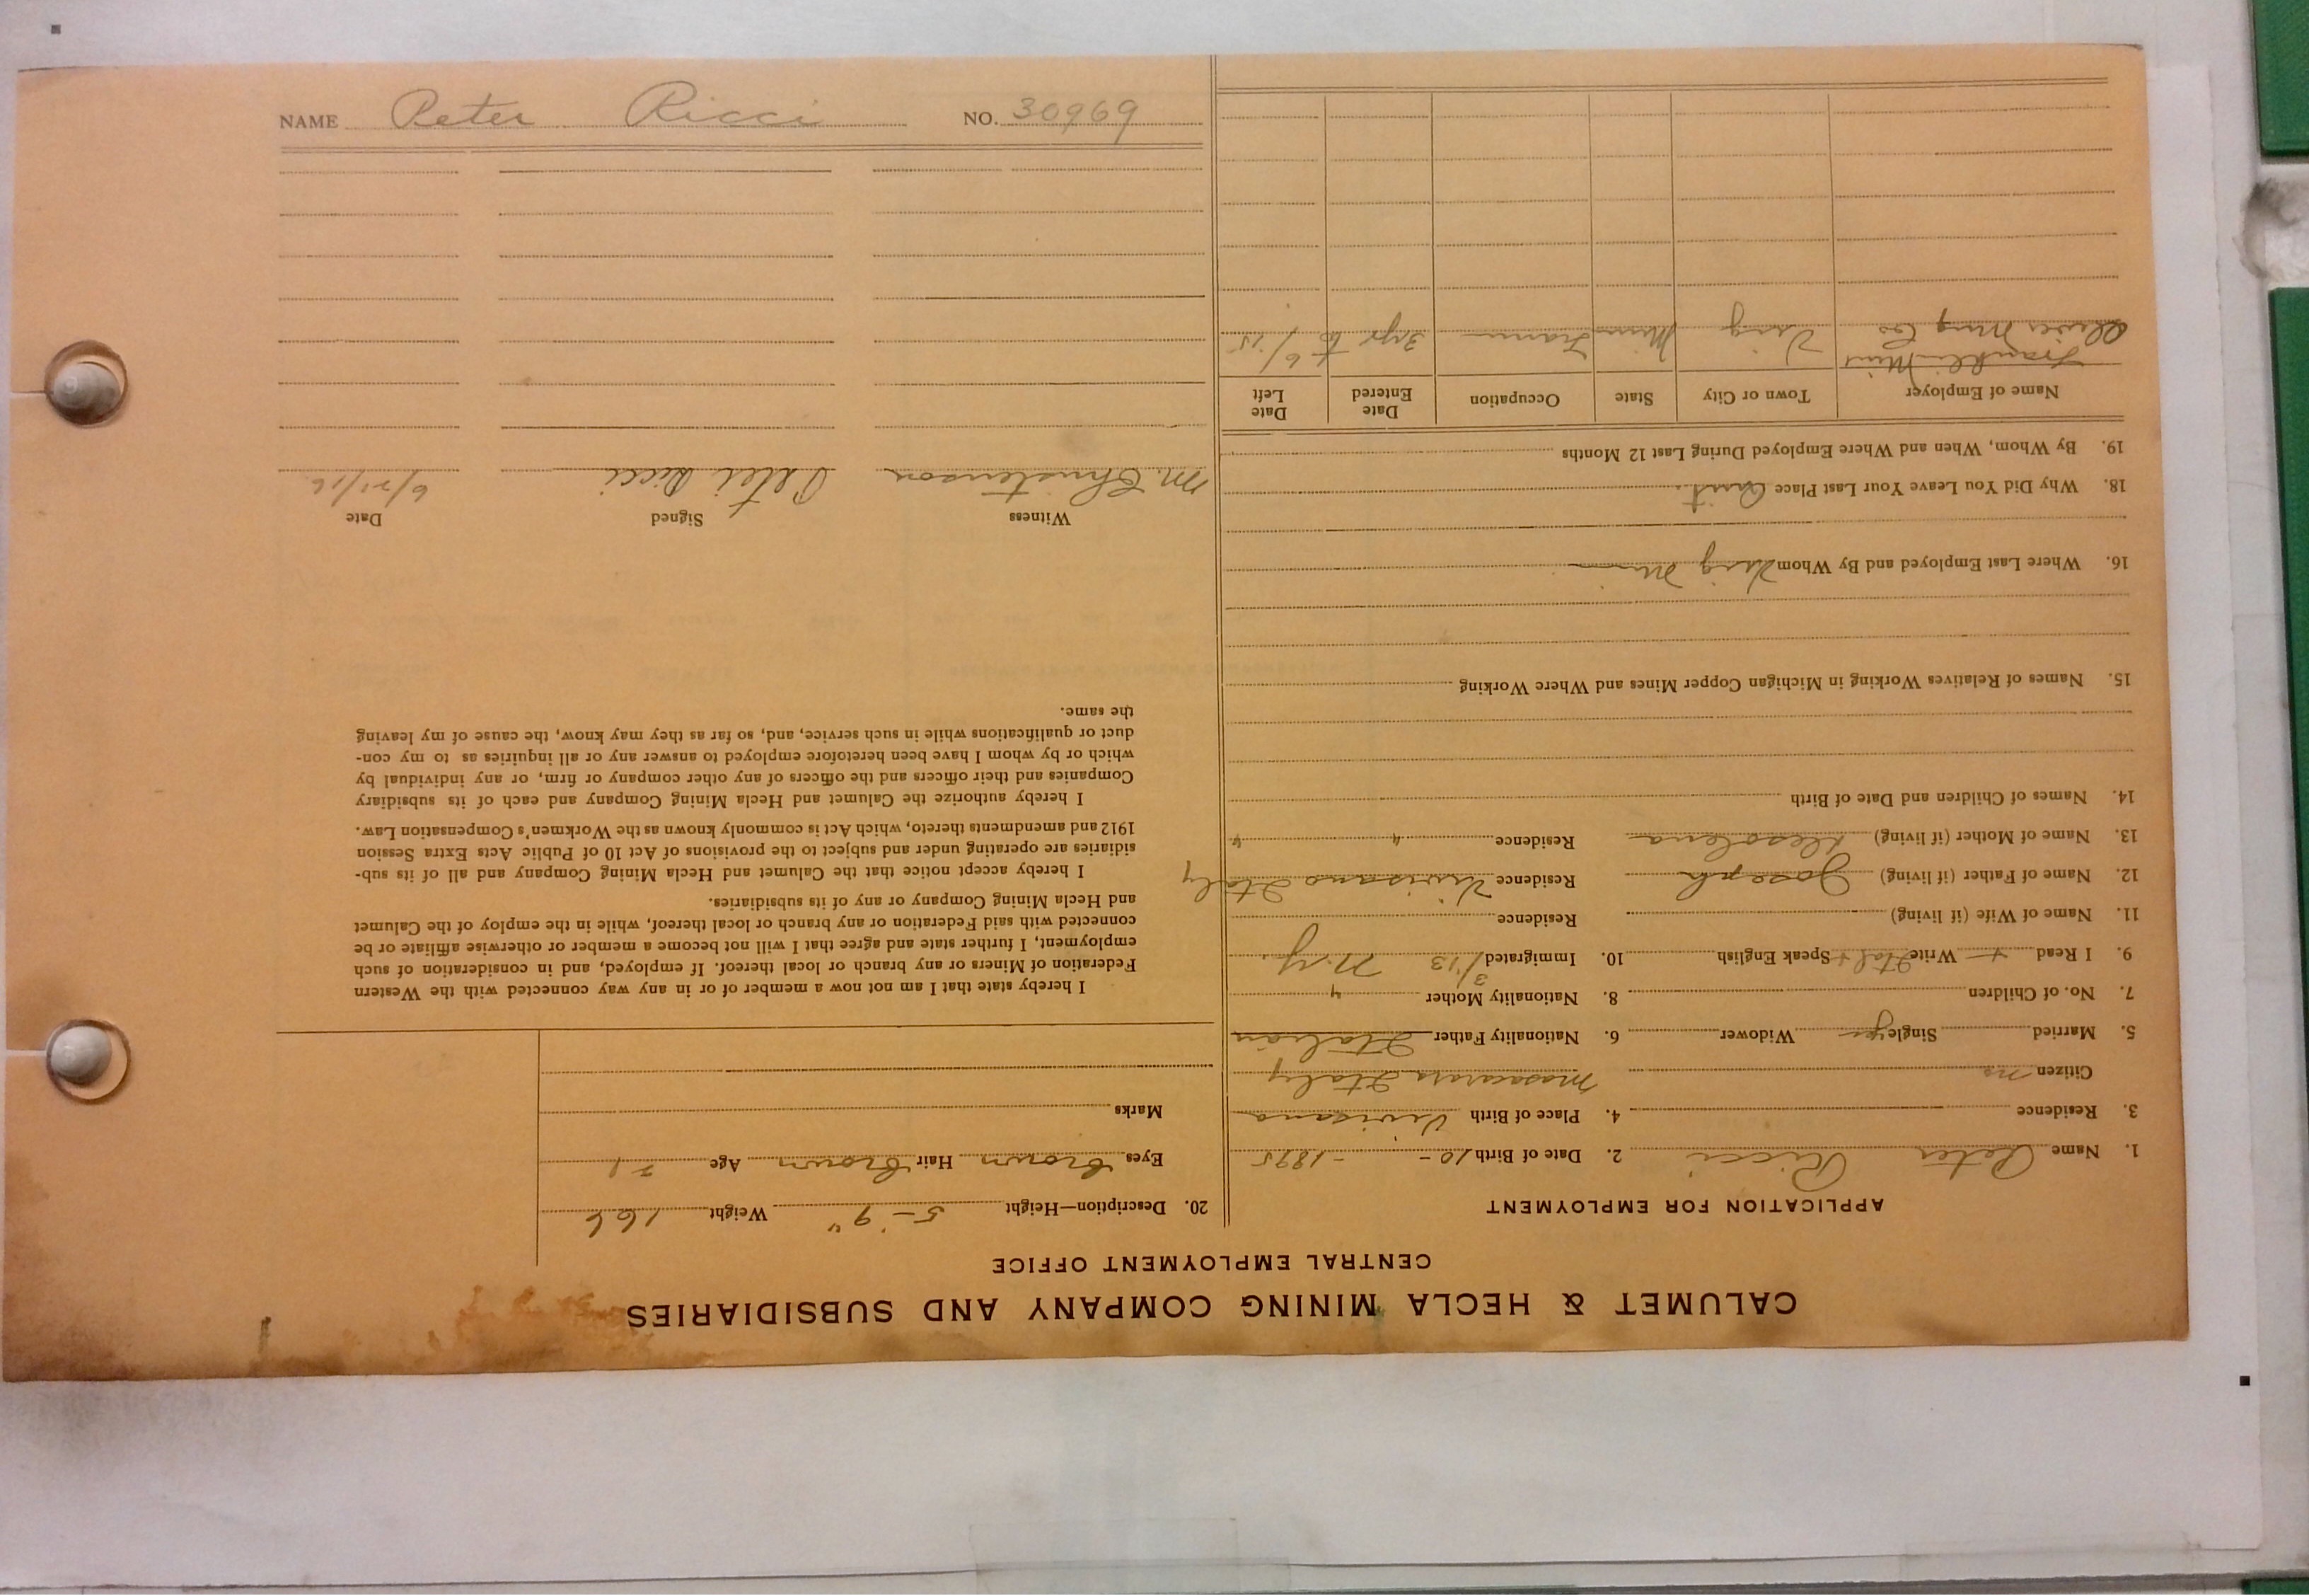 CALUMET & HECLA MINING COMPANY AND SUBSIDIARIES
CENTRAL EMPLOYMENT OFFICE
APPLICATION FOR EMPLOYMENT
1. Name Peter Ricci 2. Date of Birth 10 - - 1895
3. Residence 4. Place of Birth
Citizen no Italy
5. Married Single yes Widower 6. Nationality Father Italian
7. No. of Children 8. Nationality Mother "
9. I Read + Write Ital + Speak English 10. Immigrated 3/13 N.Y.
11. Name of Wife (if living) Residence
12. Name of Father (if living) Joseph Residence Italy
13. Name of Mother (if living) Residence " "
14. Names of Children and Date of Birth
15. Names of Relatives Working in Michigan Copper Mines and Where Working
16. Where Last Employed and By Whom Virg Min
18. Why Did You Leave Your Last Place Quit.
19. By Whom, When and Where Employed During Last 12 Months
Name of Employer Town or City State Occupation Date Entered Date Left
Franklin Mine
Oliver Mng Co Virg Minn Tram 3 yr to 6/15
20. Description—Height 5-9" Weight 166
Eyes Brown Hair Brown Age 21
Marks
I hereby state that I am not now a member of or in any way connected with the Western
Federation of Miners or any branch or local thereof. If employed, and in consideration of such
employment, I further state and agree that I will not become a member or otherwise affiliate or be
connected with said Federation or any branch or local thereof, while in the employ of the Calumet
and Hecla Mining Company or any of its subsidiaries.
I hereby accept notice that the Calumet and Hecla Mining Company and all of its sub-
sidiaries are operating under and subject to the provisions of Act 10 of Public Acts Extra Session
1912 and amendments thereto, which Act is commonly known as the Workmen's Compensation Law.
I hereby authorize the Calumet and Hecla Mining Company and each of its subsidiary
Companies and their officers and the officers of any other company or firm, or any individual by
which or by whom I have been heretofore employed to answer any or all inquiries as to my con-
duct or qualifications while in such service, and, so far as they may know, the cause of my leaving
the same.
Witness Signed Date
M. Christenson Peter Ricci 6/21/16
NAME Peter Ricci NO. 30969